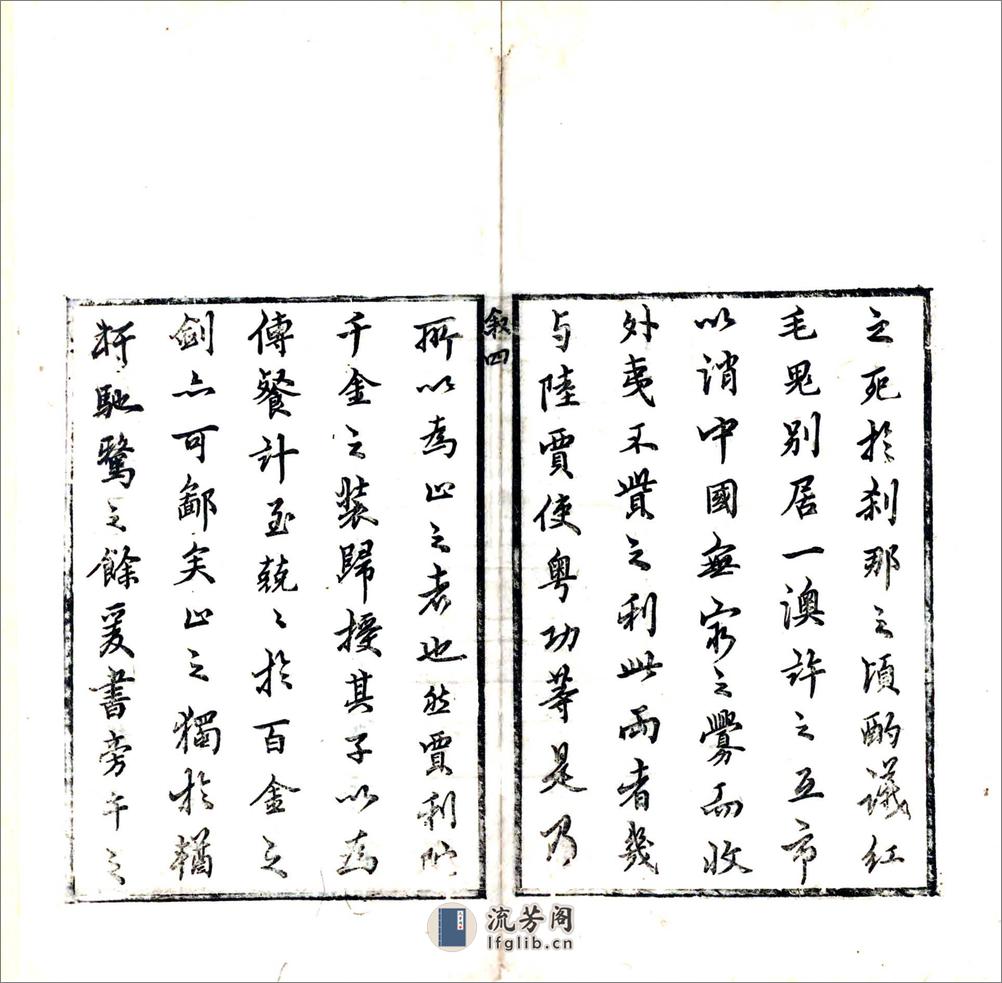 之死於刹那之頃酌議紅
毛鬼別居一澳許之互市
以消中國無窮之釁而收
外夷不貲之利此兩者幾
与陸賈使粵功等是乃
叙四
所以為山之者也然賈利陀
千金之裝歸授其子以為
傳餐計至兢〻於百金之
劍亦可鄙矣山之獨於輶
軒馳驚之餘爰書旁午之
流芳阁
lfglib.cn